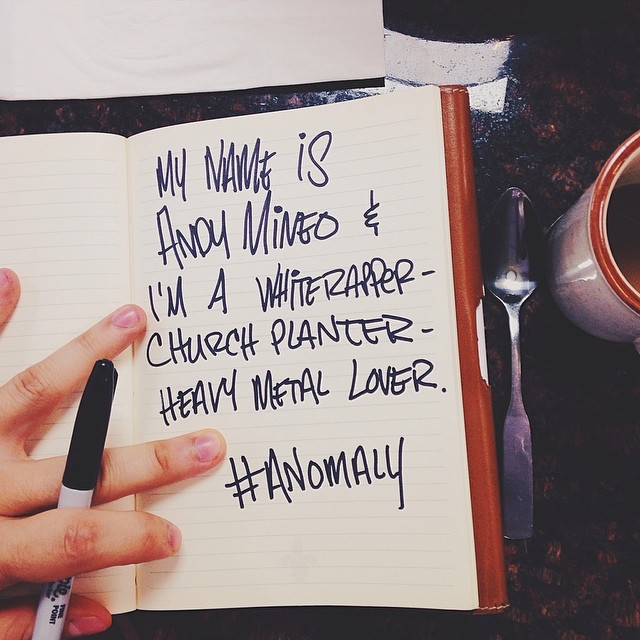 MY NAME IS
ANDY MINEO &
I'M A WHITERAPPER-
CHURCH PLANTER-
HEAVY METAL LOVER.
#ANOMALY
FINE
POINT